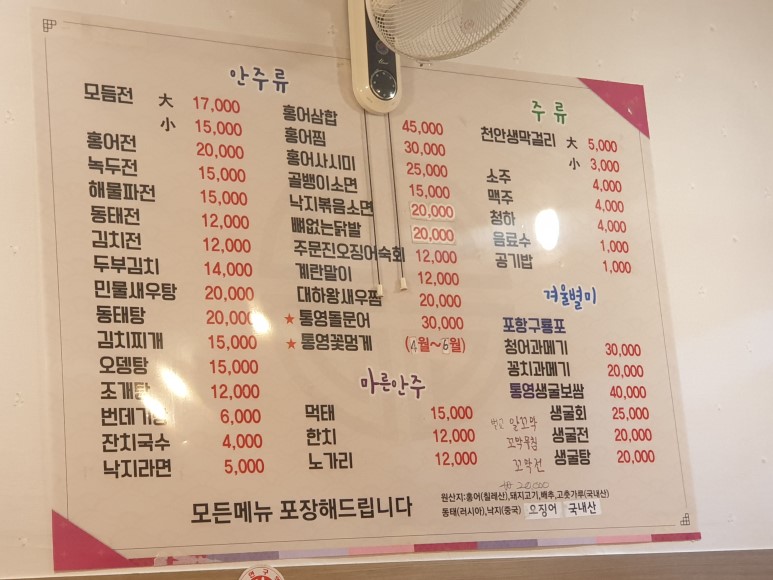 안주류
모듬전 大 17,000
小 15,000
홍어전 20,000
녹두전 15,000
해물파전 15,000
동태전 12,000
김치전 12,000
두부김치 14,000
민물새우탕 20,000
동태탕 20,000
김치찌개 15,000
오뎅탕 15,000
조개탕 12,000
번데기탕 6,000
잔치국수 4,000
낙지라면 5,000
홍어삼합 45,000
홍어찜 30,000
홍어사시미 25,000
골뱅이소면 15,000
낙지볶음소면 20,000
뼈없는닭발 20,000
주문진오징어숙회 12,000
계란말이 12,000
대하왕새우찜 20,000
★통영돌문어 30,000
★통영꽃멍게 (4월~6월)
마른안주
먹태 15,000
한치 12,000
노가리 12,000
주류
천안생막걸리 大 5,000
小 3,000
소주 4,000
맥주 4,000
청하 4,000
음료수 1,000
공기밥 1,000
겨울별미
포항구룡포
청어과메기 30,000
꽁치과메기 20,000
통영생굴보쌈 40,000
생굴회 25,000
생굴전 20,000
생굴탕 20,000
알꼬막
꼬막무침
꼬막전
20,000
모든메뉴 포장해드립니다
원산지:홍어(칠레산),돼지고기,배추,고춧가루(국내산)
동태(러시아),낙지(중국) 오징어 국내산